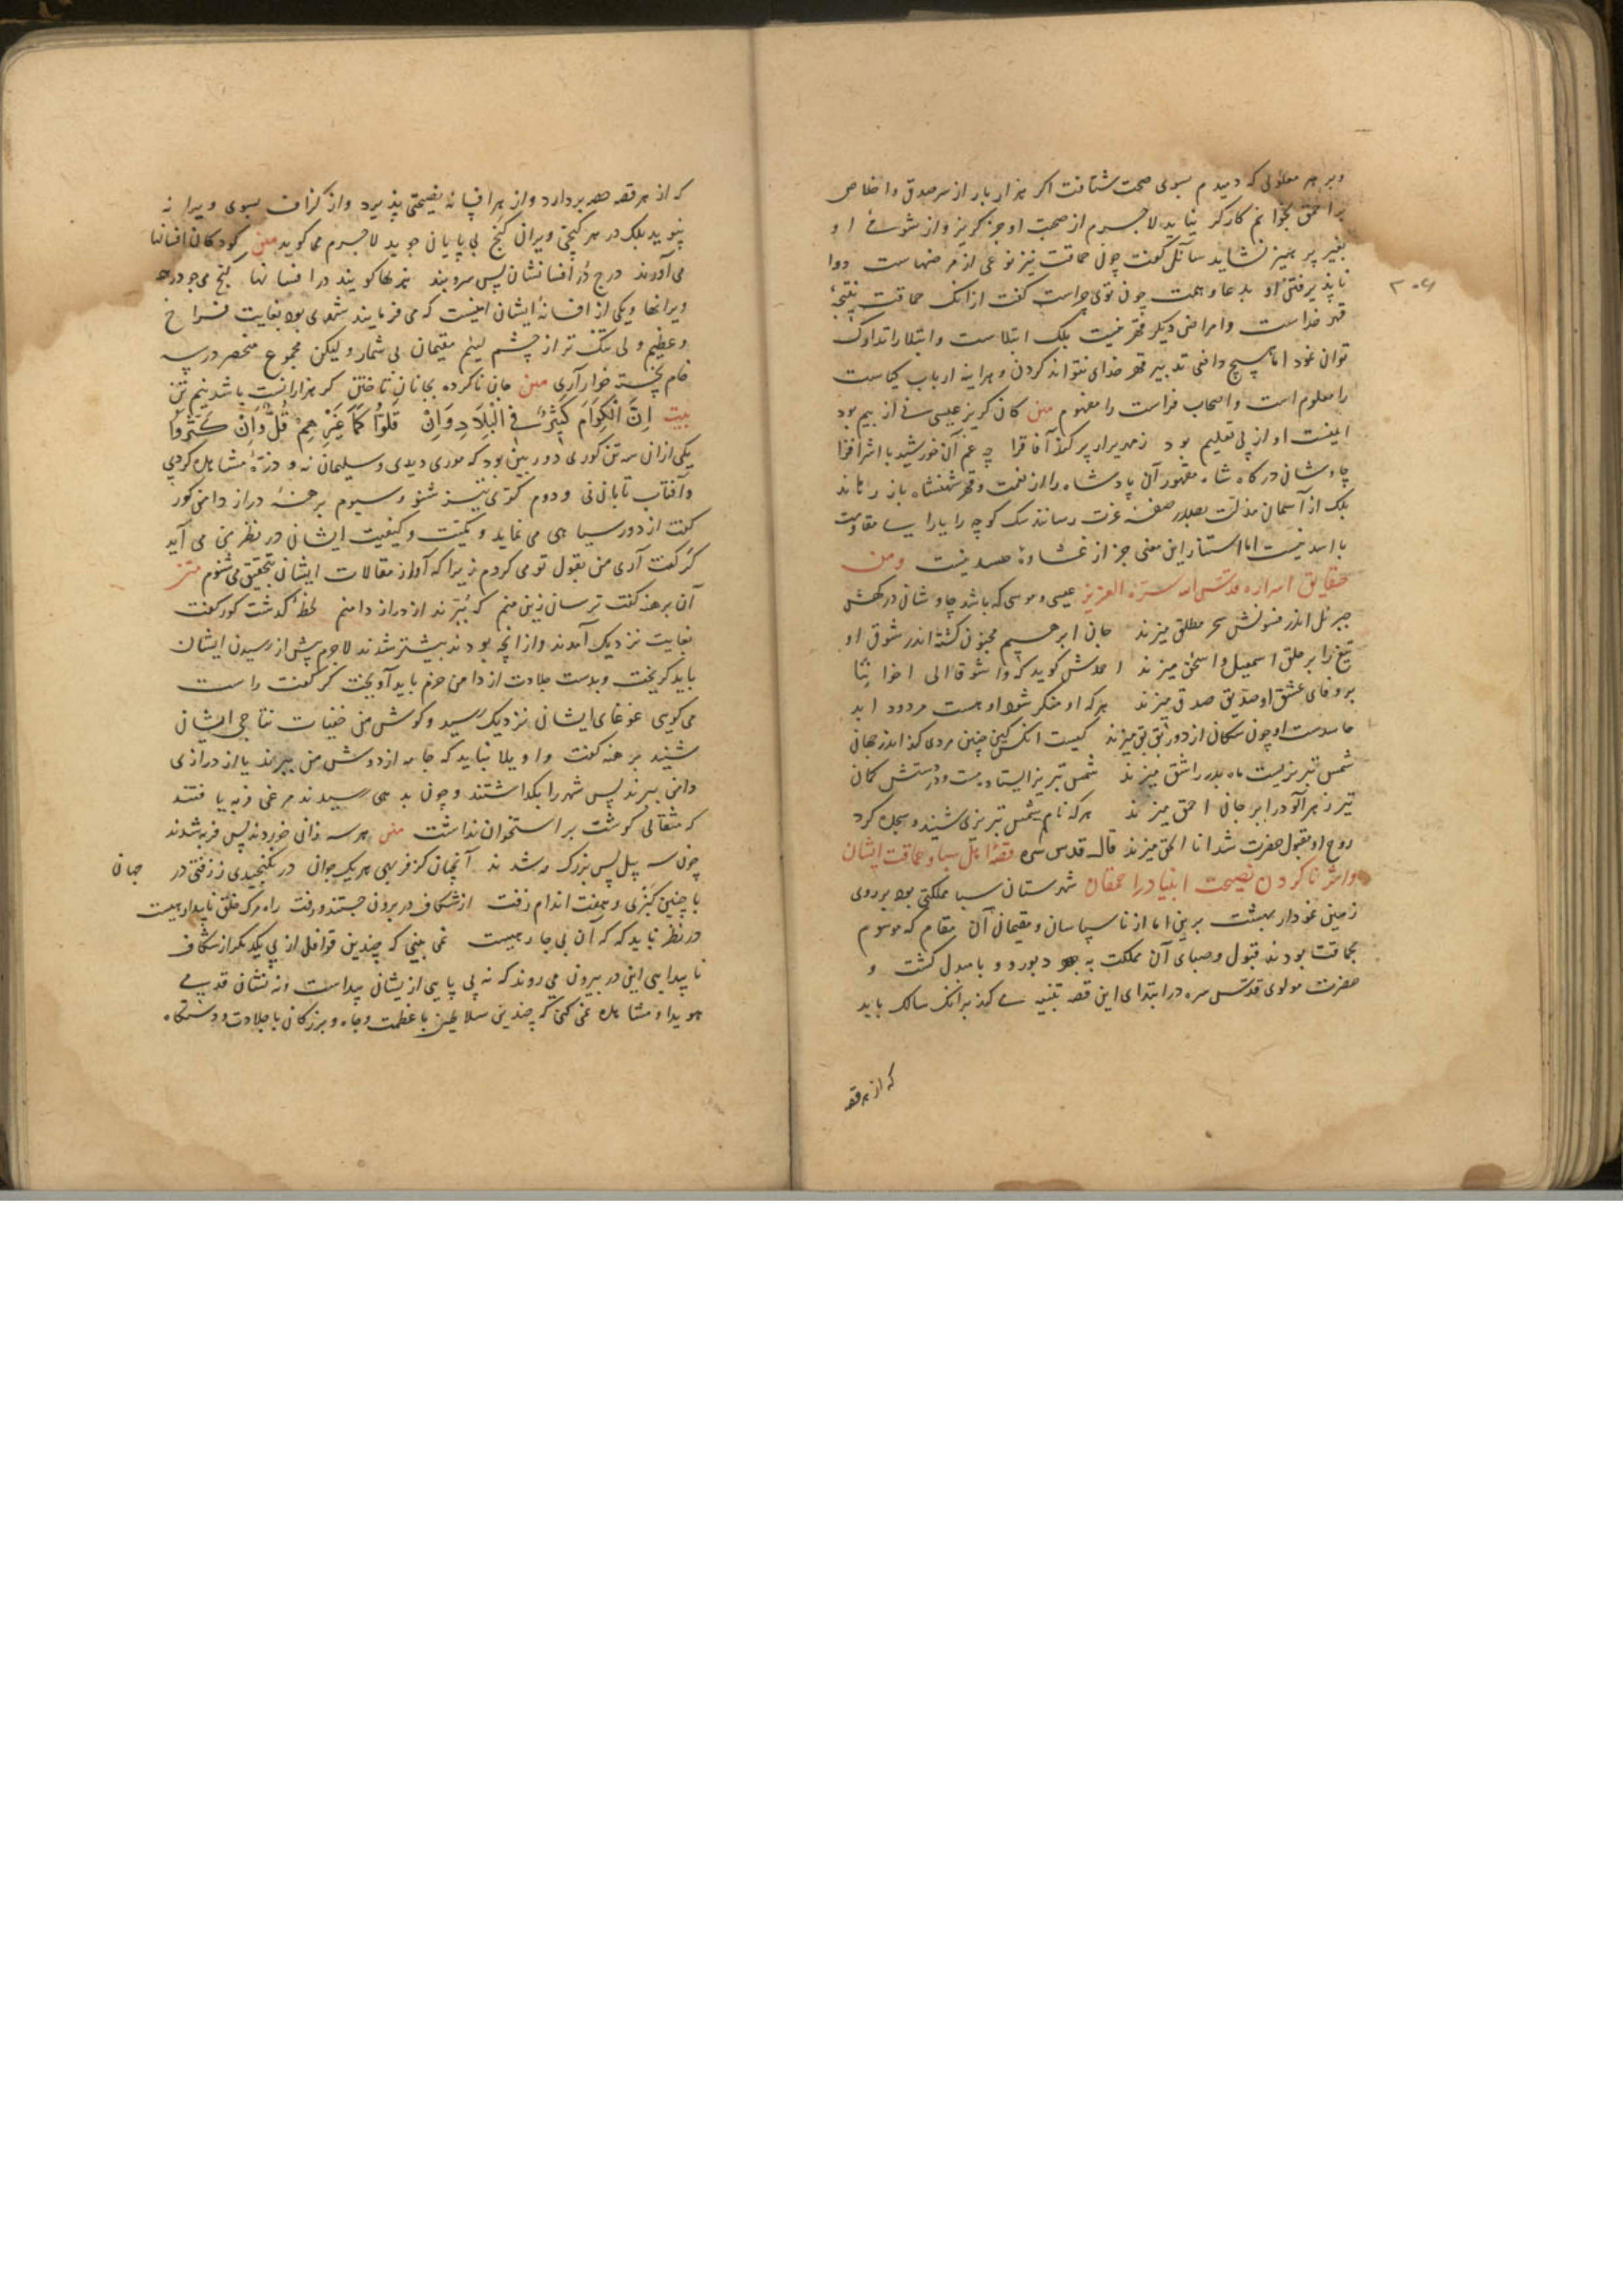 وبر هر معلولی که دمیدم بسوی صحت شتافت اکر هزار بار از سر صدق واخلاص
بر احمق بخوانم کارکر نیاید لاجرم از صحبت او جز کریز واز شومئ او
بغیر پرهیز نشاید سائل کفت چون حماقت نیز نوعی از مرضهاست دوا
ناپذیرفتن او بدعا وهمت چون توی چراست کفت از انک حماقت نتیجهٔ
قهر خداست وامراض دیکر قهر نیست بلک ابتلاست وابتلا را تدارک
توان نمود اما هیچ دافعی تدبیر قهر خدای نتواند کردن وهراینه ارباب کیاست
را معلوم است واصحاب فراست را مفهوم متن کان کریز عیسی نی از بیم بود
ایمنست او از پی تعلیم بود زمهریر ار پر کند آفاق را چه غم آن خورشید با اشراق را
چاوشان درکاه شاه مقهور آن پادشاه را از نقمت وقهر شهنشاه باز رهانند
بلک از آسمان مذلت بصدر صفهٔ عزت رسانند سک کوچه را یارای مقاومت
با اسد نیست اما استار این معنی جز از غشاوهٔ حسد نیست ومن
حقایق اسراره قدس الله سره العزیز عیسی وموسی که باشد چاوشان درکهش
جبرئیل اندر فسونش سحر مطلق میزند جان ابرهیم مجنون کشته اندر شوق او
تیغ را بر حلق اسمعیل واسحق میزند احمدش کوید که واشوقا الی اخواننا
بر وفای عشق او صدیق صدق میزند هرکه او منکر شود او هست مردود ابد
حاسدست او چون سکان از دور بق بق میزند کیست انکس کین چنین مردی کند اندر جهان
شمس تبریزیست ماه بدر را شق میزند شمس تبریز ایستاده مست ودر دستش کمان
تیر زهرآلود را بر جان احمق میزند هرکه نام شمس تبریزی شنید وسجده کرد
روح او مقبول حضرت شد انا الحق میزند قال قدس سره قصهٔ اهل سبا وحماقت ایشان
واثر ناکردن نصیحت انبیا در احمقان شهرستان سبا مملکتی بود بر روی
زمین نمودار بهشت برین اما از ناسپاسان ومقیمان آن مقام که موسوم
بحماقت بودند قبول وصبای آن مملکت به دبور ووبا مبدل کشت و
حضرت مولوی قدس سره در ابتدای این قصه تنبیه می کند برانک سالک باید
که از هر قصه
۲۰۶
که از هر قصه حصه بردارد واز هر افسانه نصیحتی پذیرد واز کزاف بسوی ویرانه
نپوید بلک در هر کنجی ویران کنج بی پایان جوید لاجرم می کوید متن کودکان افسانها
می آورند درج در افسانشان بس سر وپند هزلها کویند در افسانها کنج می جو در همه
ویرانها ویکی از افسانهٔ ایشان اینست که می فرمایند شهری بود بغایت فراخ
وعظیم ولی تنک تر از چشم لئیم مقیمان بی شمار ولیکن مجموع منحصر در سه
خام پخته خوار آری متن جان ناکرده بجانان تاختن کر هزارانست باشد نیم تن
بیت اِنَّ الْکِرَامَ کَثِیرٌ فِی الْبِلَادِ وَاِنْ قَلُّوا کَمَا غَیْرُهُم قُلٌّ وَاِنْ کَثُرُوا
یکی ازان سه تن کوری دوربین بود که موری دیدی وسلیمان نه وذرهٔ مشاهده کردی
وآفتاب تابان نی ودوم کری تیز شنو وسیوم برهنهٔ دراز دامن کور
کفت از دور سپاهی می نماید وکمیت وکیفیت ایشان در نظر من می آید
کر کفت آری من بقول تو می کردم زیرا که آواز مقالات ایشان بتحقیق می شنوم متن
آن برهنه کفت ترسان زین منم که بُبرّند از دراز دامنم لحظهٔ کذشت کور کفت
بغایت نزدیک آمدند وازانچه بودند بیشتر شدند لاجرم پیش از رسیدن ایشان
باید کریخت وبدست جلادت از دامن حزم باید آویخت کر کفت راست
می کویی غوغای ایشان نزدیک رسید وکوش من خفیات تناجی ایشان
شنید برهنه کفت واویلا نباید که جامه از دوش من ببرند یا از درازی
دامن ببرند پس شهر را بکذاشتند وچون بدهی رسیدند مرغی فربه یافتند
که مثقالی کوشت بر استخوان نداشت متن هر سه زان خوردند بس فربه شدند
چون سه پیل بس بزرک ومه شدند آنچنان کز فربهی هر یک جوان در نکنجیدی ز زفتی در جهان
با چنین کبزی وهفت اندام زفت از شکاف در برون جستند ورفت راه مرک خلق ناپیدا رهیست
در نظر ناید که آن بی جا رهیست نمی بینی که چندین قوافل از پی یکدیکر از شکاف
ناپیدایی این در بیرون می روند که نه پی پایی ازیشان پیداست ونه نشان قدمی
هویدا ومشاهده نمی کنی که چندین سلاطین با عظمت وجاه وبزرکان با جلادت ودستکاه